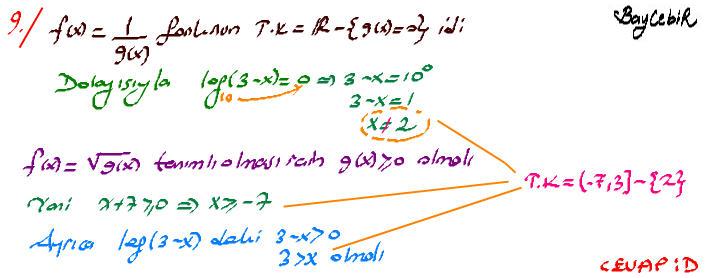 BayCebiR
9./ f(x) = 1/g(x) fonk.nun T.K = R - {g(x)=0} idi
Dolayısıyla log₁₀(3-x) = 0 ⇒ 3-x = 10⁰
3-x = 1
x ≠ 2
f(x) = √g(x) tanımlı olması için g(x) ≥ 0 olmalı
Yani x+7 ≥ 0 ⇒ x ≥ -7
T.K = (-7, 3] - {2}
Ayrıca log(3-x) daki 3-x > 0
3 > x olmalı
CEVAP : D